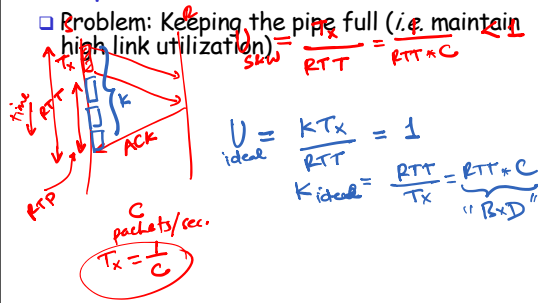 Problem: Keeping the pipe full (i.e. maintain
high link utilization)
U S&W = Tx / RTT = 1 / RTT * C < 1
S
R
Tx
RTT
time
K
ACK
RTP
U ideal = KTx / RTT = 1
K ideal = RTT / Tx = RTT * C
"B×D"
C
packets/sec.
Tx = 1 / C